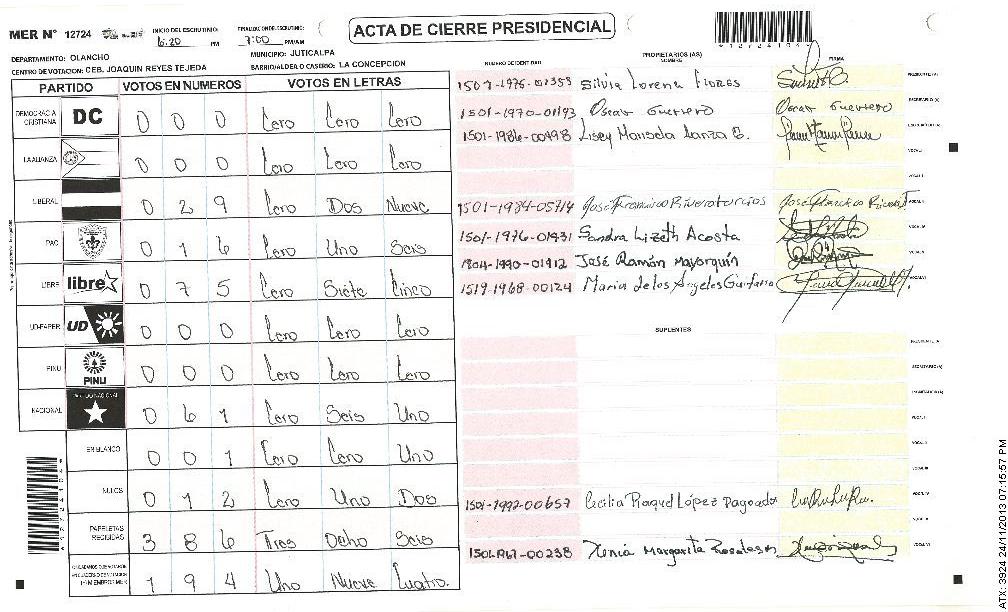 MER N° 12724
INICIO DEL ESCRUTINIO: 6:20 PM
FINALIZACION DE ESCRUTINIO: 7:00 PM/AM
ACTA DE CIERRE PRESIDENCIAL
DEPARTAMENTO: OLANCHO
MUNICIPIO: JUTICALPA
CENTRO DE VOTACION: CEB. JOAQUIN REYES TEJEDA
BARRIO/ALDEA O CASERIO: LA CONCEPCION
PARTIDO VOTOS EN NUMEROS VOTOS EN LETRAS
DEMOCRACIA CRISTIANA DC 0 0 0 Cero Cero Cero
LA ALIANZA 0 0 0 Cero Cero Cero
LIBERAL 0 2 9 Cero Dos Nueve
PAC 0 1 6 Cero Uno Seis
LIBRE libre 0 7 5 Cero Siete Cinco
UD-FAPER UD 0 0 0 Cero Cero Cero
PINU PINU 0 0 0 Cero Cero Cero
NACIONAL 0 6 1 Cero Seis Uno
EN BLANCO 0 0 1 Cero Cero Uno
NULOS 0 1 2 Cero Uno Dos
PAPELETAS RECIBIDAS 3 8 6 Tres Ocho Seis
1 9 4 Uno Nueve Cuatro.
NUMERO DE IDENTIDAD
PROPIETARIOS (AS)
NOMBRE
FIRMA
1507-1976-01353 Silvia Lorena Flores
PRESIDENTE (A)
1501-1970-01193 Oscar Guerrero Oscar Guerrero
SECRETARIO (A)
1501-1986-00498
VOCAL I
VOCAL II
1501-1984-05714 José Francisco Rivera
1501-1976-01431 Sandra Lizeth Acosta
1804-1990-01912 José Ramón Mayorquín
1519-1968-00124 Maria de los Angeles
SUPLENTES
PRESIDENTE (A)
SECRETARIO (A)
VOCAL I
VOCAL II
VOCAL III
1501-1992-00657 Cecilia Raquel López
VOCAL IV
VOCAL V
00238 Xenia Margarita Rosales
VOCAL VI
ATX: 3924 24/11/2013 07:15:57 PM